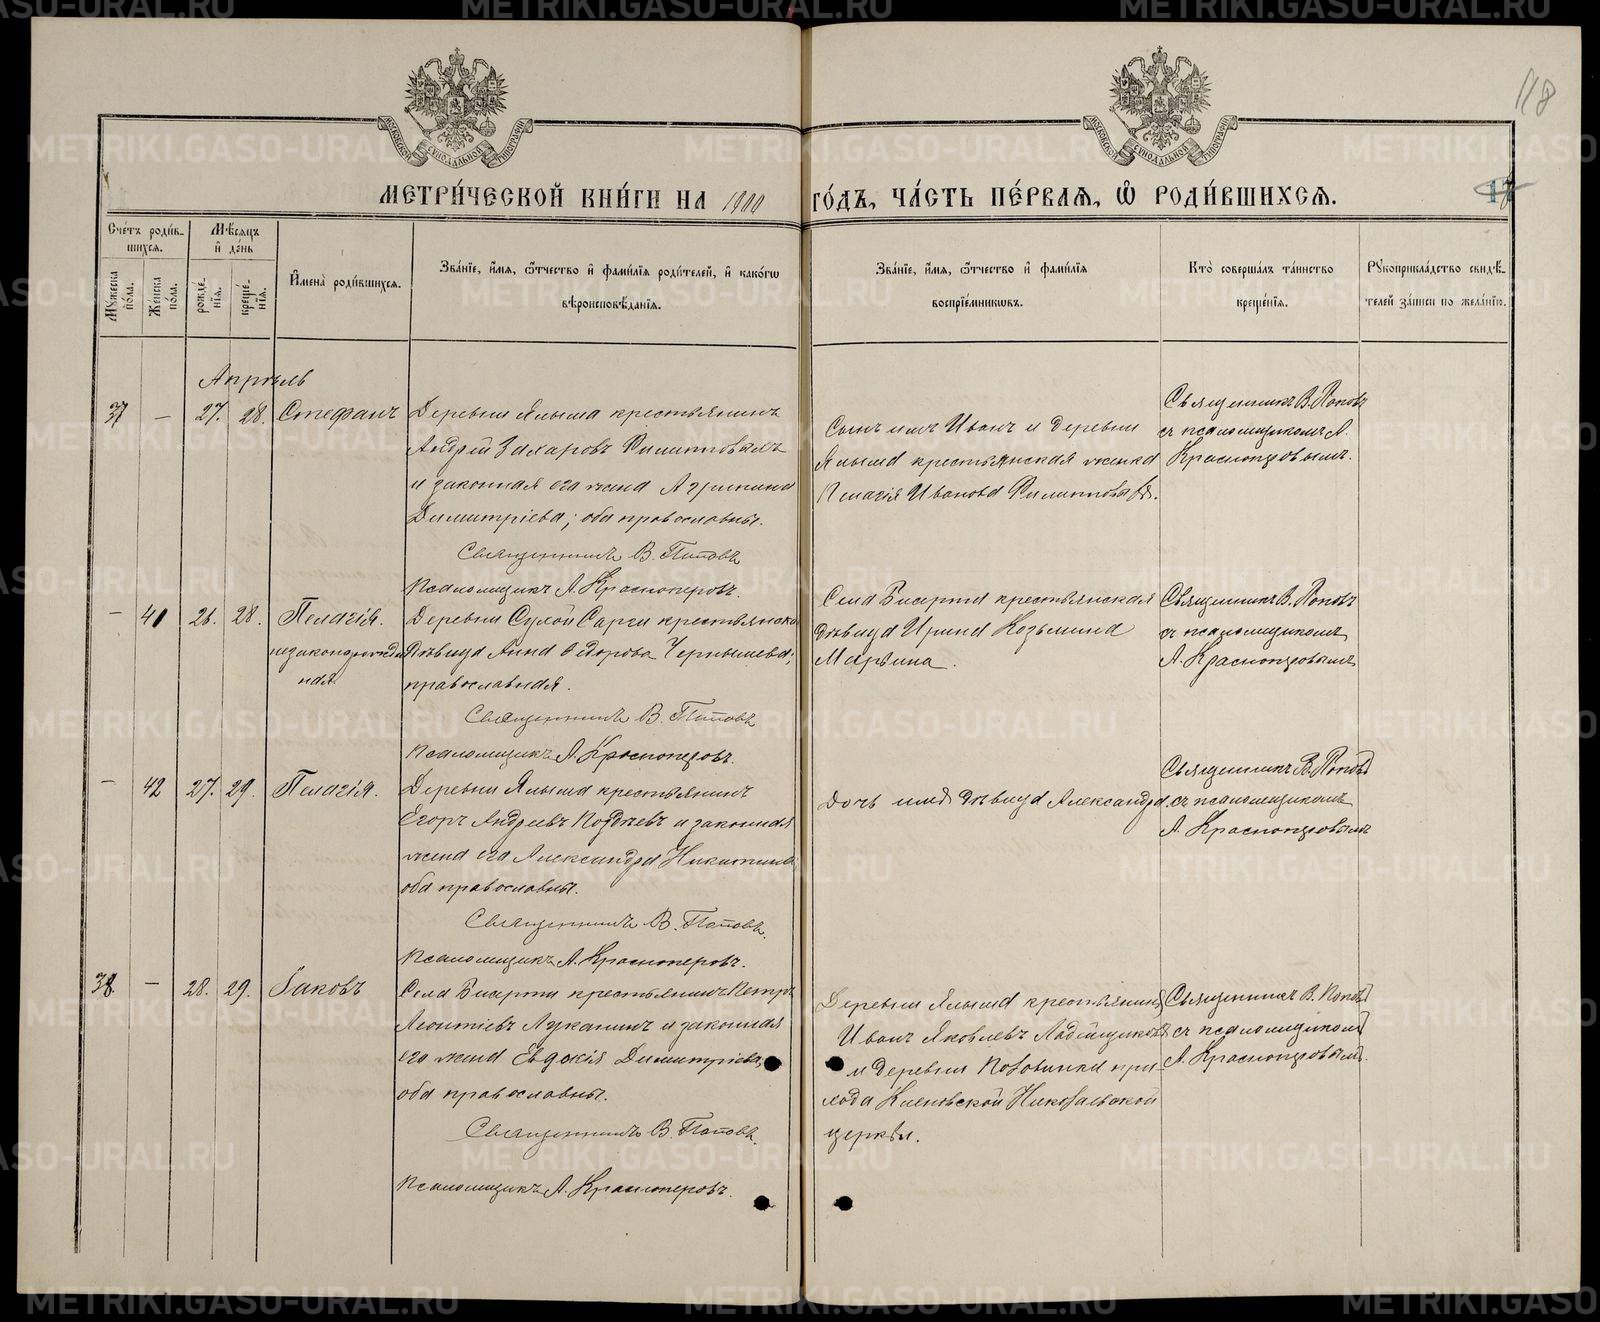 118
МОСКОВСКОЙ СѴНОДАЛЬНОЙ ТИПОГРАФІИ
МОСКОВСКОЙ СѴНОДАЛЬНОЙ ТИПОГРАФІИ
МЕТРИ́ЧЕСКОЙ КНИ́ГИ НА 1900 ГО́ДЪ, ЧА́СТЬ ПЕ́РВАЯ, Ѽ РОДИ́ВШИХСЯ.
Сче́тъ роди́вшихся.
Мѣ́сяцъ и҆ де́нь
Мꙋ́жеска по́ла.
Же́нска по́ла.
рожде́нїя.
креще́нїя.
И҆мена̀ роди́вшихся.
Зва́нїе, и҆́мя, ѻ҆́тчество и҆ фами́лїя роди́телей, и҆ како́гѡ
вѣроисповѣ́данїя.
Зва́нїе, и҆́мя, ѻ҆́тчество и҆ фами́лїя
воспрїе́мникѡвъ.
Кто̀ соверша́лъ та́инство
креще́нїя.
Рꙋкоприкла́дство свидѣ́телей за́писи по жела́нїю.
Апрѣль
37 — 27. 28. Стефанъ
Деревни Ялыма крестьянинъ
Андрей Захаровъ Филипповыхъ
и законная его жена Агрипина
Димитріева; оба православны.
Священникъ В. Поповъ
Псаломщикъ А. Красноперовъ.
Сынъ ихъ Иванъ и деревни
Ялыма крестьянская женка
Пелагія Иванова Филипповыхъ.
Священникъ В. Поповъ
съ псаломщикомъ А.
Красноперовымъ.
— 41 26. 28. Пелагія.
незаконорожден
ная
Деревни Сухой Сарги крестьянска
дѣвица Анна Ѳедорова Чернышева;
православная.
Священникъ В. Поповъ
Псаломщикъ А. Красноперовъ.
Села Бисерти крестьянская
дѣвица Ирина Козьмина
Марьина.
Священникъ В. Поповъ
съ псаломщикомъ
А. Красноперовымъ
— 42 27. 29. Пелагія.
Деревни Ялыма крестьянинъ
Егоръ Андреевъ Поздѣевъ и законная
жена его Александра Никитина
оба православны.
Священникъ В. Поповъ.
Псаломщикъ А. Красноперовъ.
Дочь ихъ дѣвица Александра.
Священникъ В. Поповъ
съ псаломщикомъ
А. Красноперовымъ
38 — 28. 29. Іаковъ
Села Бисерти крестьянинъ Петръ
Леонтіевъ Луканинъ и законная
его жена Евдокія Димитріева,
оба православны.
Священникъ В. Поповъ.
Псаломщикъ А. Красноперовъ.
Деревни Ялыма крестьянинъ
Иванъ Яковлевъ
и деревни Половинки при-
хода Кленовской Николаевской
церкви.
Священникъ В. Поповъ
съ псаломщикомъ
А. Красноперовымъ.
METRIKI.GASO-URAL.RU